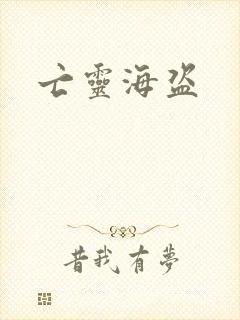 亡靈海盜
昔我有夢